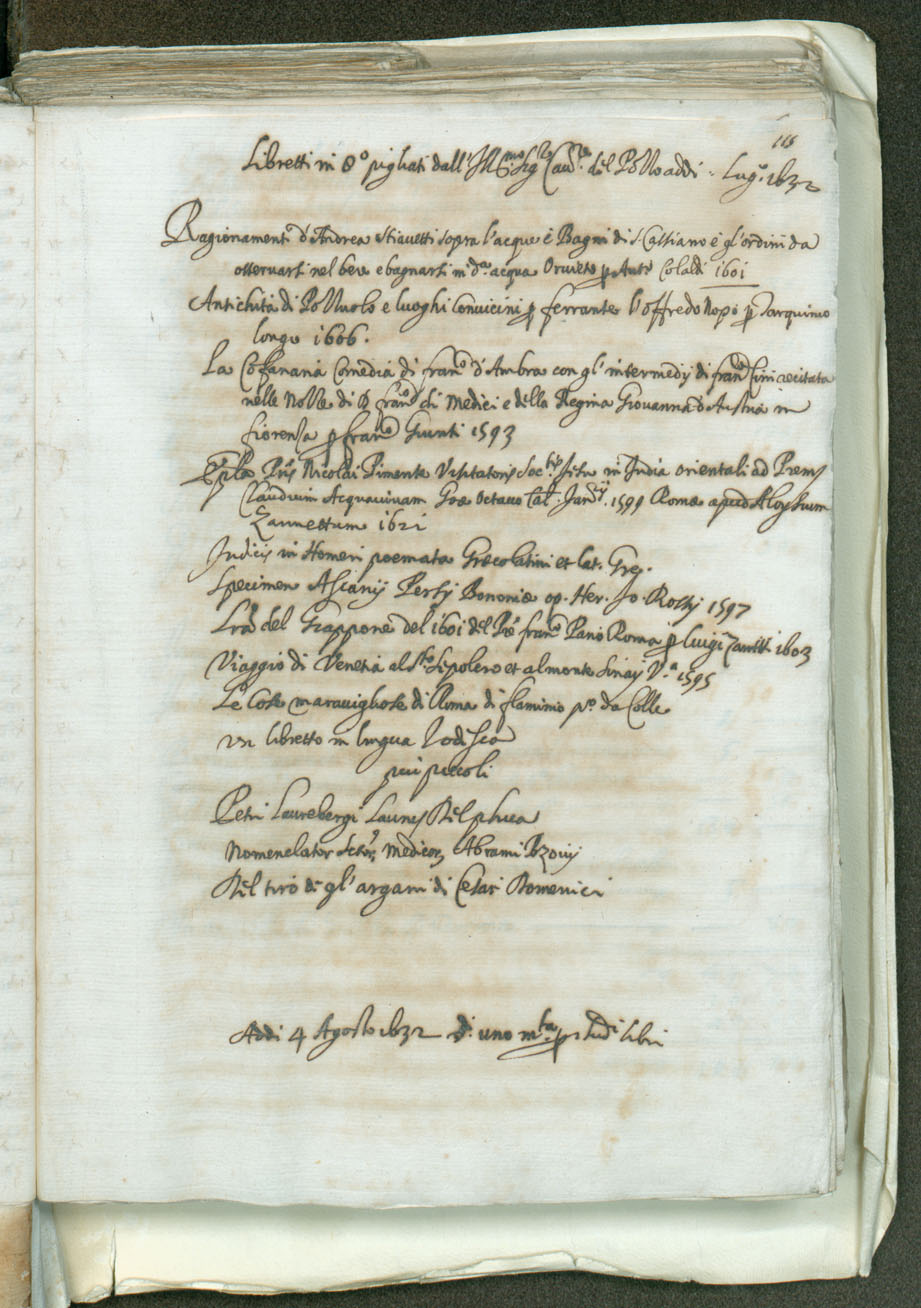 115
Libretti in 8º pigliati dall'Ill.mo Sig.re Cau.re del Pozzo addi - Lug.º 1632
Ragionamenti d'Andrea Stiauetti sopra l'acque e Bagni di S. Cassiano e gl'ordini da
osseruarsi nel bere e bagnarsi in d.a acqua Oruieto p Ant.º Colaldi 1601
Antichità di Pozzuolo e luoghi conuicini p ferrante Loffredo Napoi p Tarquinio
longo 1606.
La Coffanaria Comedia di fran.º d'Ambra con gl'intermedij di fran.º Cini recitata
nelle Nozze di D. fran.º di Medici e della Regina Giouanna d'Austria in
fiorenza p fran.º Giunti 1593
Epla Pris Nicolai Pimenta Visitatoris Soc.tis Jesu in India orientali ad Prem
Claudium Acquauiuam Goæ Octauo Cal. Jan.ij 1599 Romæ apud Aloysium
Zannettum 1621
Indicij in Homeri poemata Græcolatini et lat. Gre.
Specimen Ascanij Persij Bononiæ ap. Her. Jo. Rossij 1597
Lra del Giappone del 1601 del Pre fran.º Pasio Roma p Luigi Zanetti 1603
Viaggio di Venetia al S.to Sepolcro et al monte Sinay V.a 1595
Le Cose marauigliose di Roma di flaminio p.º da Colle
un libretto in lingua Todesca
piu piccoli
Petri Laurebergi Laurus Delphica
Nomenclator Sctor. Medicor. Abrami Bzouij
Del tiro de gl'argani di Cesar Domenici
Addi 4 Agosto 1632 D. uno m.ta p. sudi libri